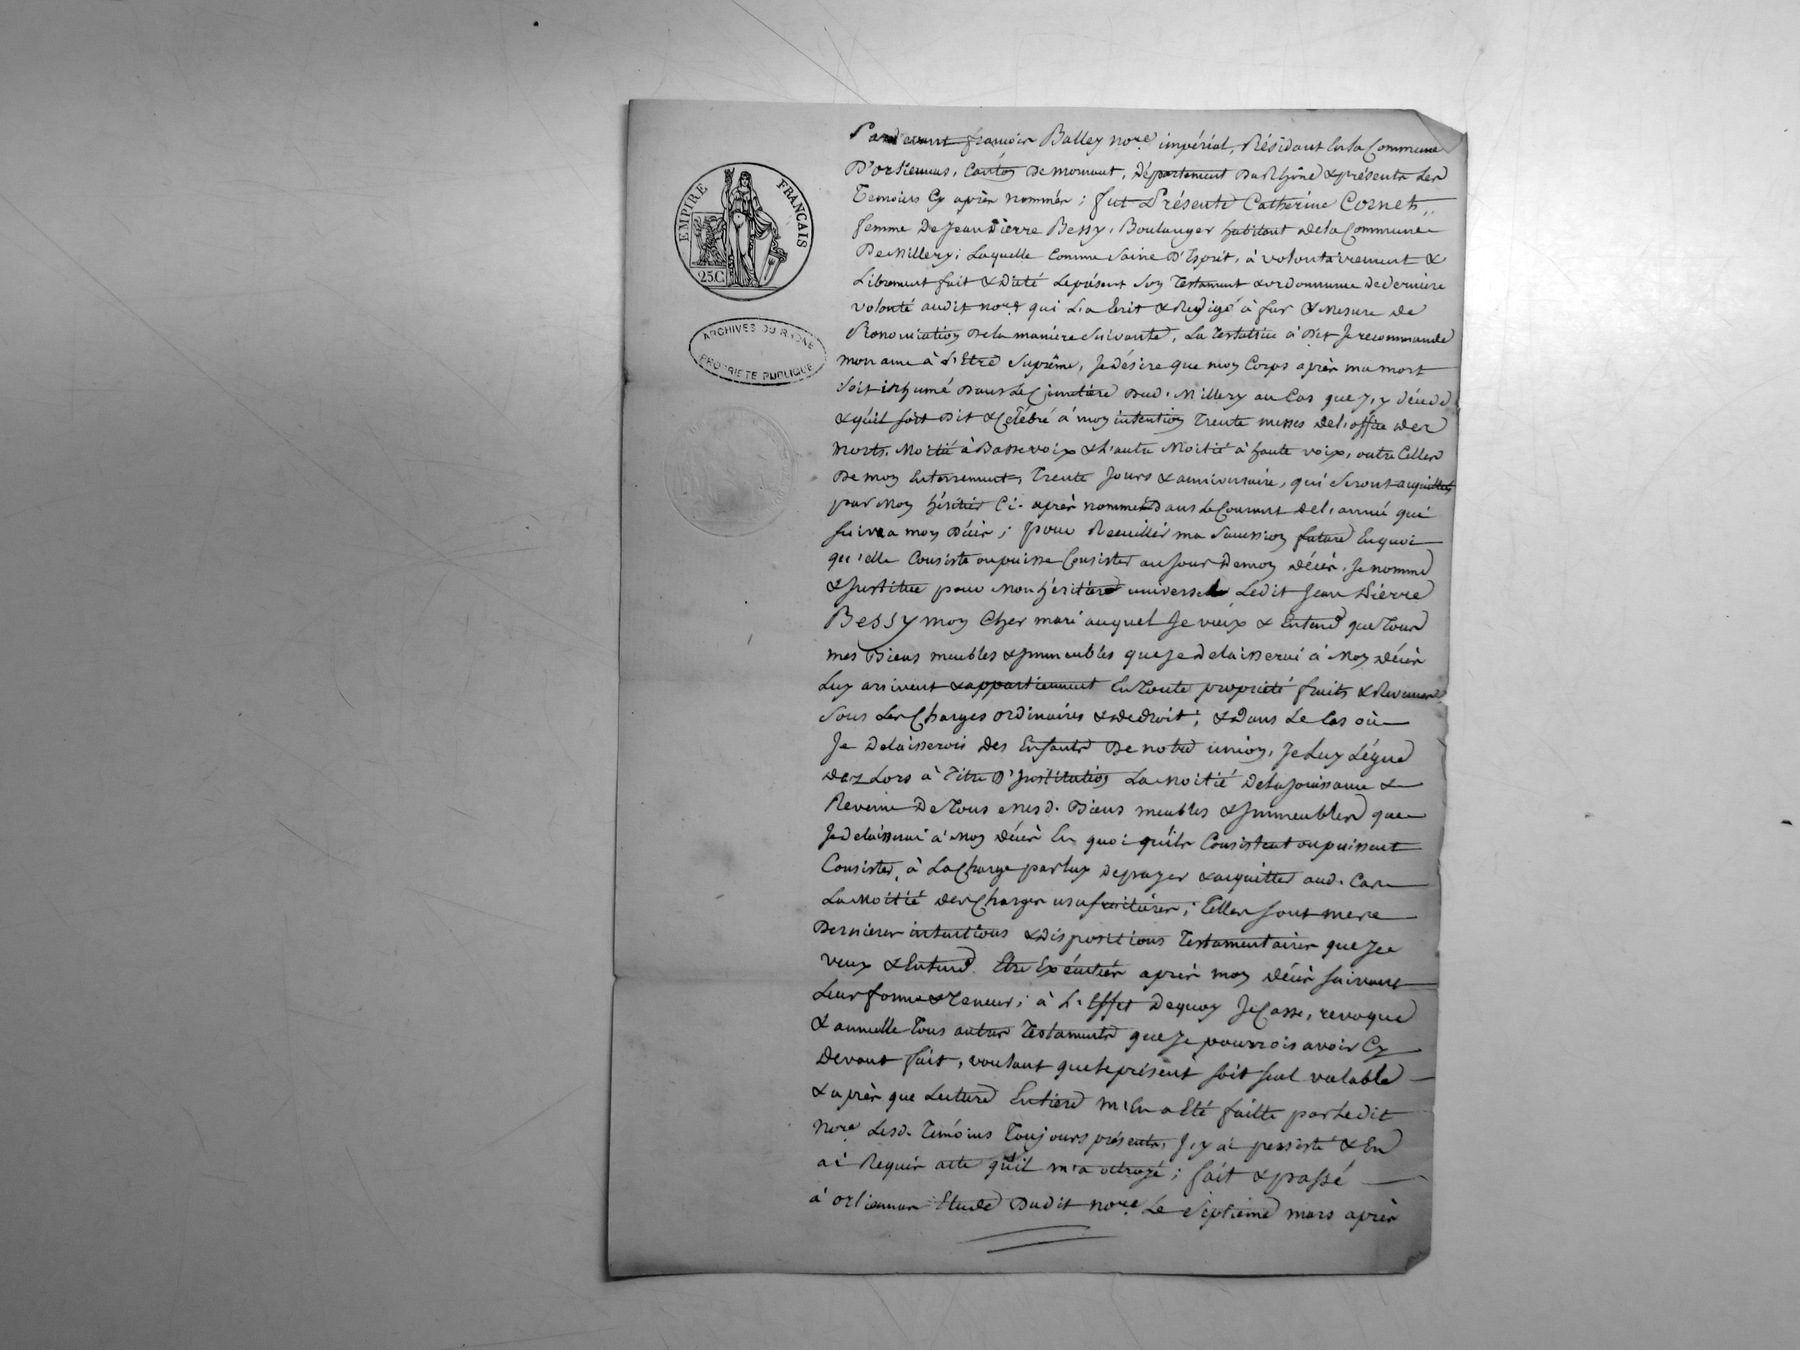 EMPIRE FRANÇAIS
25C
ARCHIVES DU RHÔNE
PROPRIÉTÉ PUBLIQUE
Pardevant françois Balley no.re impérial, Résidant en la Commune
D'orliennas, Canton De mornant, Département Du Rhône & présents les
Temoins Cy après nommés ; fut Présente Catherine Cornet,,
femme De Jean Pierre Bessy, Boulanger habitant de la Commune
De Millery ; Laquelle comme Saine D'Esprit, à volontairement &
Librement fait & Dicté Le présent Son Testament & ordonnance De derniere
volonté audit no.re qui L'a Ecrit & Redigé à fur & Mesure de
Prononciation De la maniere Suivante, La Testatrice à Dit Je recommande
mon ame à L'Etre Suprême, Je désire que mon Corps après ma mort
Soit inhumé Dans Le Cimetiere Dud. Millery au Cas que J'y décede
& qu'il soit Dit & Célébré à mon intention Trente messes De l'office des
morts, Moitié à Basse voix & L'autre Moitié à haute voix, outre Celles
De mon Enterrement, Trente Jours & anniversaire, qui Seront acquittés
par Mon héritier Ci-après nommé Dans Le Courant De l'année qui
suivra mon Décès ; Pour Recueillir ma Succession future En quoi
qu'elle Consiste ou puisse Consister au Jour De mon décès, Je nomme
& Institue pour Mon héritier universel Ledit Jean Pierre
Bessy mon Cher mari auquel Je veux & Entend que Tous
mes Biens meubles & Immeubles que Je Delaisserai à Mon décès
Luy arrivent & appartiennent En Toute propriété fruits & Revenus
Sous Les Charges ordinaires & De droit ; & Dans Le Cas où
Je Delaisserois des Enfants De notre union, Je Luy Légue
dez Lors à Titre D'Institution La Moitié De la Jouissance &
Revenu De Tous mesd. Biens meubles & Immeubles que
Je Delaisserai à Mon décès En quoi qu'ils Consistent ou puissent
Consister, à La Charge par luy De payer & acquitter aud. Cas
La Moitié des Charges usufruitières ; Telles sont mes
Dernieres intentions & Dispositions Testamentaires que Je
veux & Entend Etre Exécutées après mon décès suivant
Leur forme & Teneur ; à L'Effet De quoy Je Casse, revoque
& annulle Tous autres Testaments que Je pourrois avoir Cy
Devant fait, voulant que le présent soit seul valable
& après que Lecture Entiere m'En a Eté faitte par Ledit
No.re Lesd. Temoins Toujours présents, J'y ai persisté & En
ai Requis acte qu'il m'a octroyé ; fait & passé
à orliennas Etude Dudit no.re Le Septieme mars après